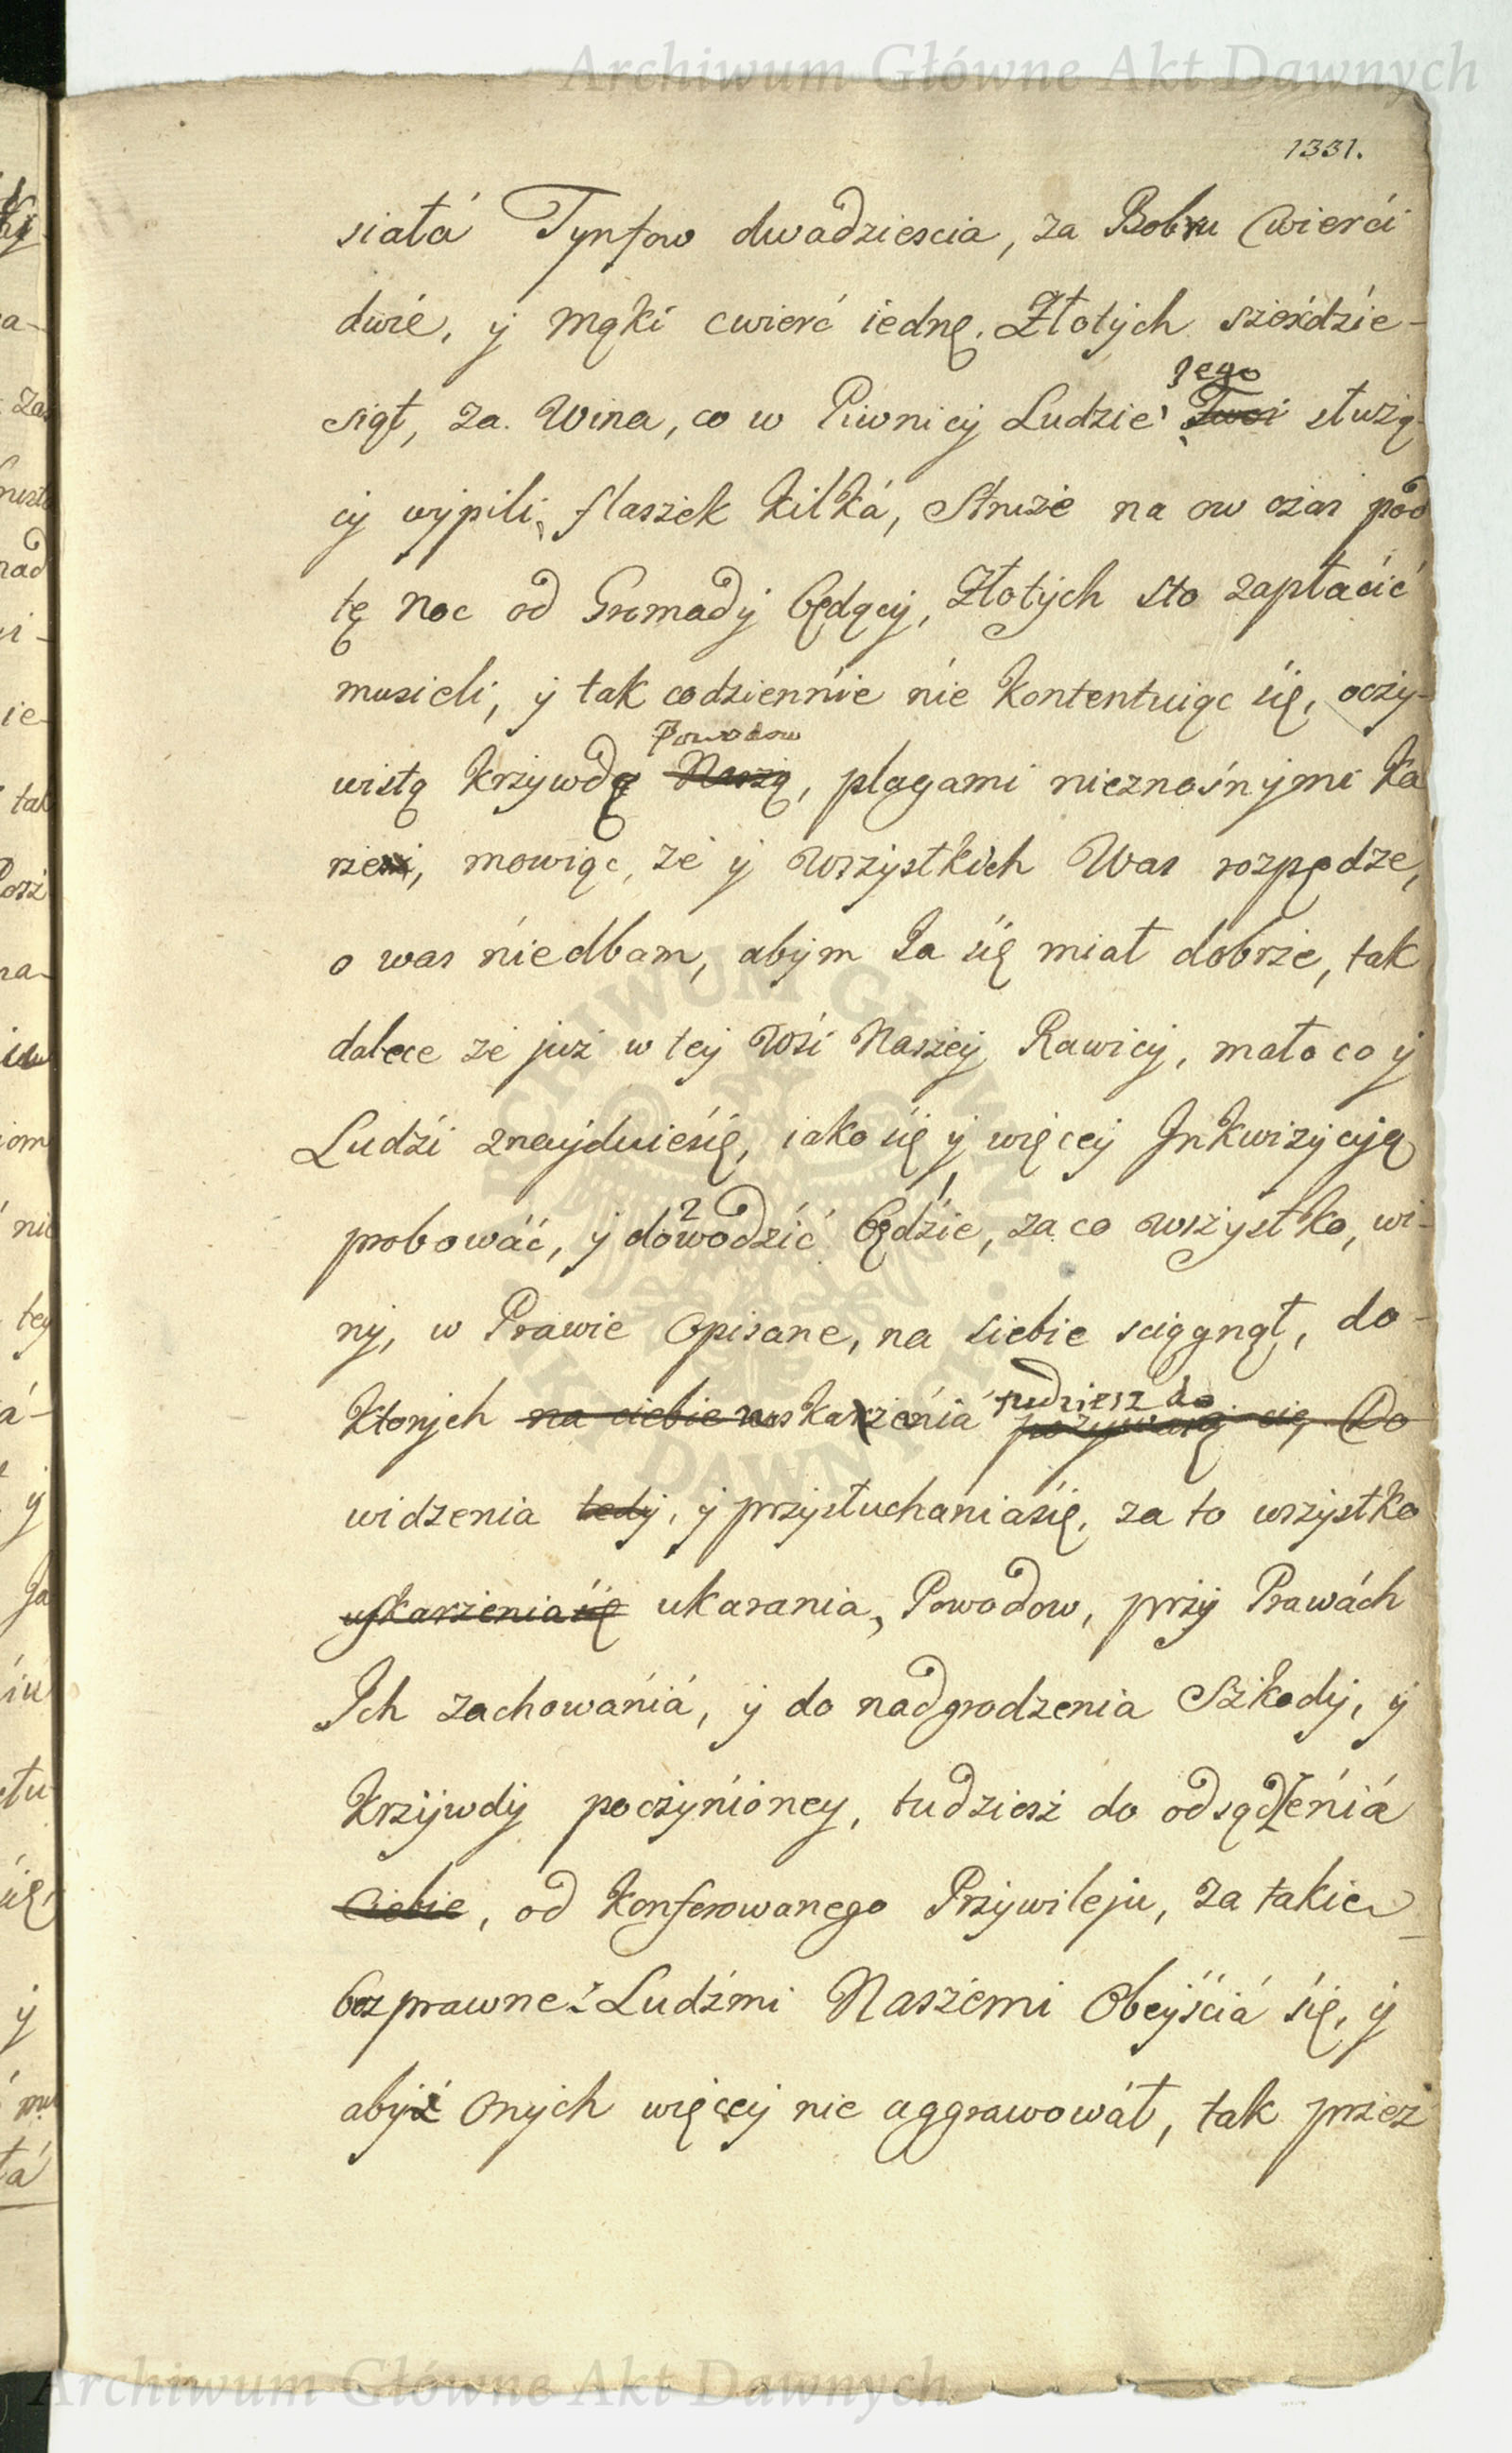 Archiwum Główne Akt Dawnych
1331.
siatá Tynfow dwadziescia, za Bobru Cwierći
dwie, y mąki cwierć iednę. Złotych sześdzie-
Jego
siąt, za Wina, co w Piwnicy Ludzie Twoi służą-
cy wypili, flaszek kilká, Struże na ow czas pod
tę noc od Gromady będącij, Złotych sto zapłacić
musieli, y tak codziennie nie kontentuiąc się, oczy-
Powodow
wistą krzywdą Naszą, plagami nieznośnymi ka
rze, mowiąc, że y wszystkich Was rozpędze,
o was niedbam, abym Ja się miał dobrze, tak
dalece że już w tey Wsi Naszey Rawicy, mało co y
Ludzi znayduiesię, iako się y więcey Inkwizycyą
probowáć, y dowodzić będzie, za co wszystko, wi-
ny, w Prawie opisane, na siebie sciągnął, do-
tudziesz do
ktorych na ciebie wskarzenia pozywaią cię Do
widzenia tedy, y przysłuchaniasię, za to wszystko
uskarzeniasię ukarania, Powodow, przy Prawách
Ich zachowániá, y do nadgrodzenia Szkody, y
krzywdy poczynióney, tudziesz do odsądzéniá
Ciebie, od konferowanego Przywileju, za takie
bezprawne z Ludźmi Naszemi Obeyściá się, y
abyś onych więcey nie aggrawowáł, tak przez
ARCHIWUM GŁÓWNE AKT DAWNYCH
Archiwum Główne Akt Dawnych